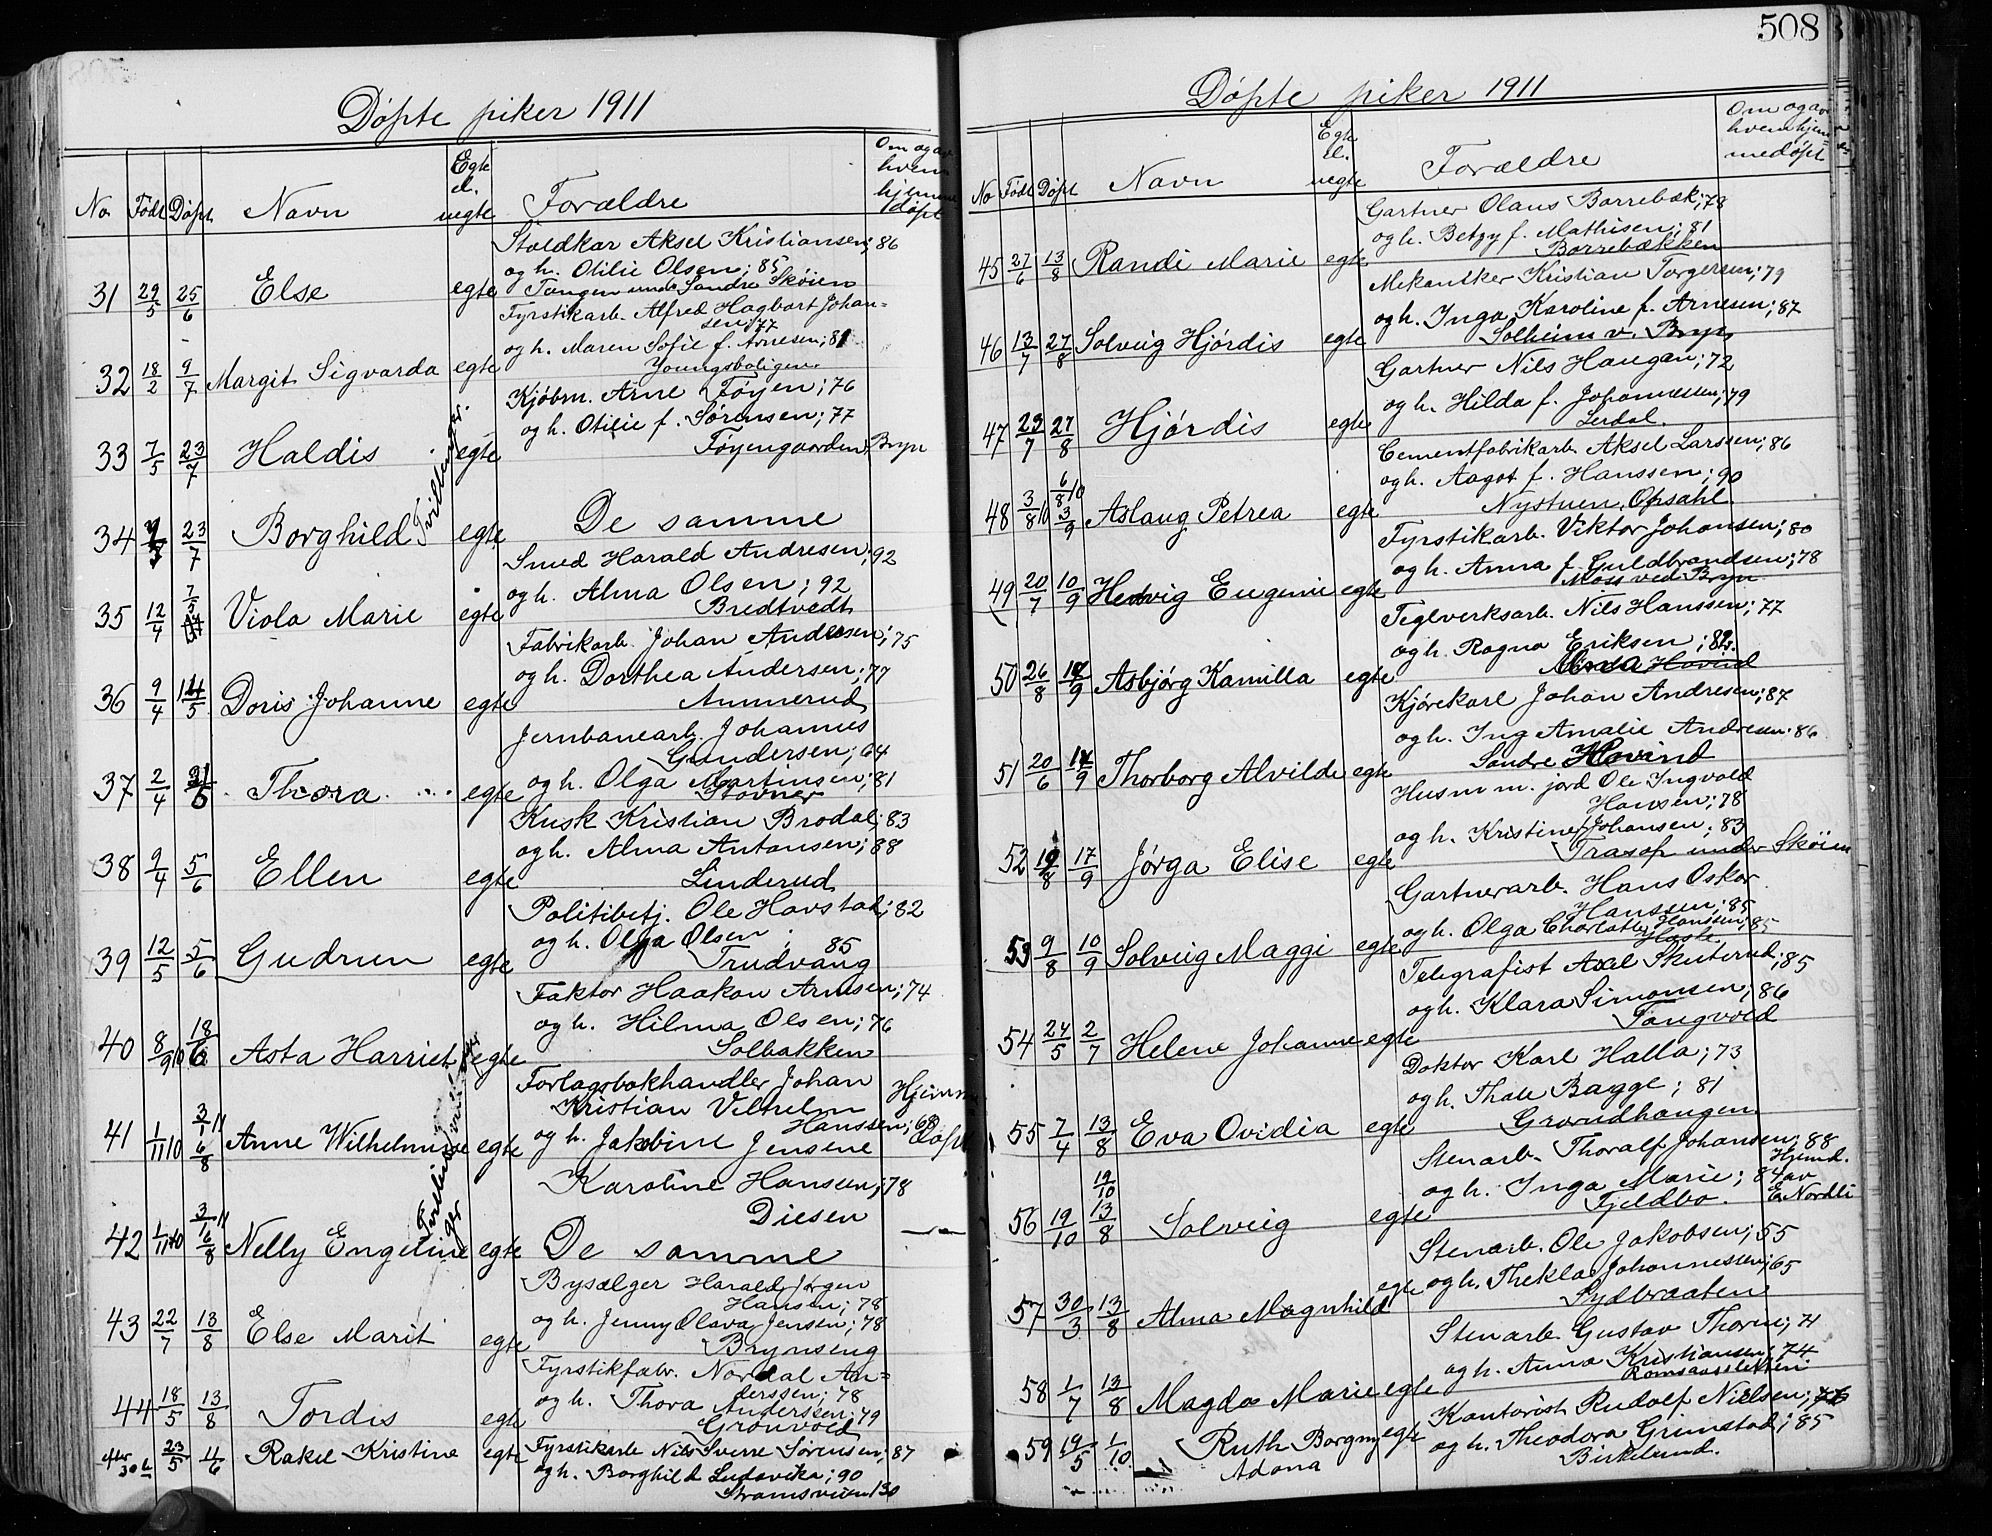 508
Døpte piker 1911
No Født Døpt Navn Egte el. uegte Forældre Om og av hvem hjemmedøpt
31 29/5 25/6 Else egte Staldkar Aksel Kristiansen; 86
og h. Otilie Olsen; 85
Tangen under Søndre Skøien
32 18/2 9/7 Margit Sigvarda egte Fyrstikarb. Alfred Hagbart Johan=
sen; 77
og h. Maren Sofie f. Arnesen; 81
Youngsboligen
33 7/5 23/7 Haldis egte Kjøbm. Arne Tøyen; 76
og h. Otilie f. Sørensen; 77
Tøyengaarden, Bryn
Tvillinger
34 7/5 23/7 Borghild egte De samme
35 12/4 7/5 Viola Marie egte Smed Harald Andresen; 92
og h. Alma Olsen; 92
Bredtvedt
36 9/4 14/5 Doris Johanne egte Fabrikarb. Johan Andersen; 75
og h. Dorthea Andersen; 77
Ammerud
37 2/4 21/5 Thora egte Jernbanearb. Johannes
Gundersen; 64
og h. Olga Martinsen; 81
Stovner
38 9/4 5/6 Ellen egte Kusk Kristian Brodal; 83
og h. Alma Antonsen; 88
Linderud
39 12/5 5/6 Gudrun egte Politibetj. Ole Havstad; 82
og h. Olga Olsen; 85
Trudvang
40 8/9 10 18/6 Asta Harriet egte Faktor Haakon Arnesen; 74
og h. Hilma Olsen; 76
Solbakken
41 1/11 10 3/11 6/8 Anne Wilhelmine egte Forlagsbokhandler Johan
Kristian Vilhelm
Hanssen; 68
og h. Jakobine Jensine
Karoline Hansen; 78
Diesen
Hjemmedøpt
42 1/11 10 3/11 6/8 Nelly Engeline egte De samme
43 22/7 13/8 Else Marit egte Bysælger Harald Jørgen
Hansen; 78
og h. Jenny Olava Jensen; 78
Brynseng
44 18/5 13/8 Tordis egte Fyrstikfabr. Nordal An=
derssen; 78
og h. Thora Anderssen; 79
Grønvold
23/5 11/6 Rakel Kristine egte Fyrstikarb. Nils Sverre Sørensen; 87
og h. Borghild Ludovika; 90
Strømsveien 130
Døpte piker 1911
No Født Døpt Navn Egte el. uegte Forældre Om og av hvem hjemmedøpt
45 27/6 13/8 Randi Marie egte Gartner Olaus Borrebæk; 78
og h. Betzy f. Mathisen; 81
Borrebækken
46 13/7 27/8 Solveig Hjørdis egte Mekaniker Kristian Torgersen; 79
og h. Inga Karoline f. Arnesen; 87
Solheim v. Bryn
47 23/7 27/8 Hjørdis egte Gartner Nils Haugen; 72
og h. Hilda f. Johannessen; 79
Lerdal.
48 3/8 10 6/8 10 3/9 Aslaug Petrea egte Cementfabrikarb. Aksel Larssen; 86
og h. Aagot f. Hanssen; 90
Nystuen, Opsahl
49 20/7 10/9 Hedvig Eugenie egte Fyrstikarb. Viktor Johansen; 80
og h. Anna f. Guldbrandsen; 78
Moss ved Bryn
50 26/8 17/9 Asbjørg Kamilla egte Teglverksarb. Nils Hanssen; 77
og h. Ragna Eriksen; 82
Hovind
51 20/6 17/9 Thorborg Alvilde egte Kjørekarl Johan Andresen; 87
og h. Ing Amalie Andresen. 86
Søndre Hovind
52 19/8 17/9 Jørga Elise egte Husm m. jord Ole Ingvold
Hansen; 78
og h. Kristine f Johansen; 83
Trasop under Skøien
53 9/8 10/9 Solveig Maggi egte Gartnerarb. Hans Oskar
Hanssen; 85
og h. Olga Charlotte Hanssen; 85
Hasle
54 24/5 2/7 Helene Johanne egte Telegrafist Axel Skuterud; 85
og h. Klara Simonsen; 86
Tangvold
55 7/4 13/8 Eva Ovidia egte Doktor Karl Halla; 73
og h. Thale Bagge; 81
Grandhaugen
56 19/10 19/10 13/8 Solveig egte Stenarb. Thoralf Johansen; 88
og h. Inga Marie; 84
Fjeldbo.
Hjemd. av E Nordli
57 30/3 13/8 Alma Magnhild egte Stenarb. Ole Jakobsen; 55
og h. Thekla Johannessen; 65
Sydbraaten
58 1/7 13/8 Magda Marie egte Stenarb. Gustav Thorn; 71
og h. Anna Kristiansen; 74
Romsaassletten
59 19/5 1/10 Ruth Borgny Adona egte Kontorist Rudolf Nielsen; 76
og h. Theodora Grimstad; 85
Birkelund.